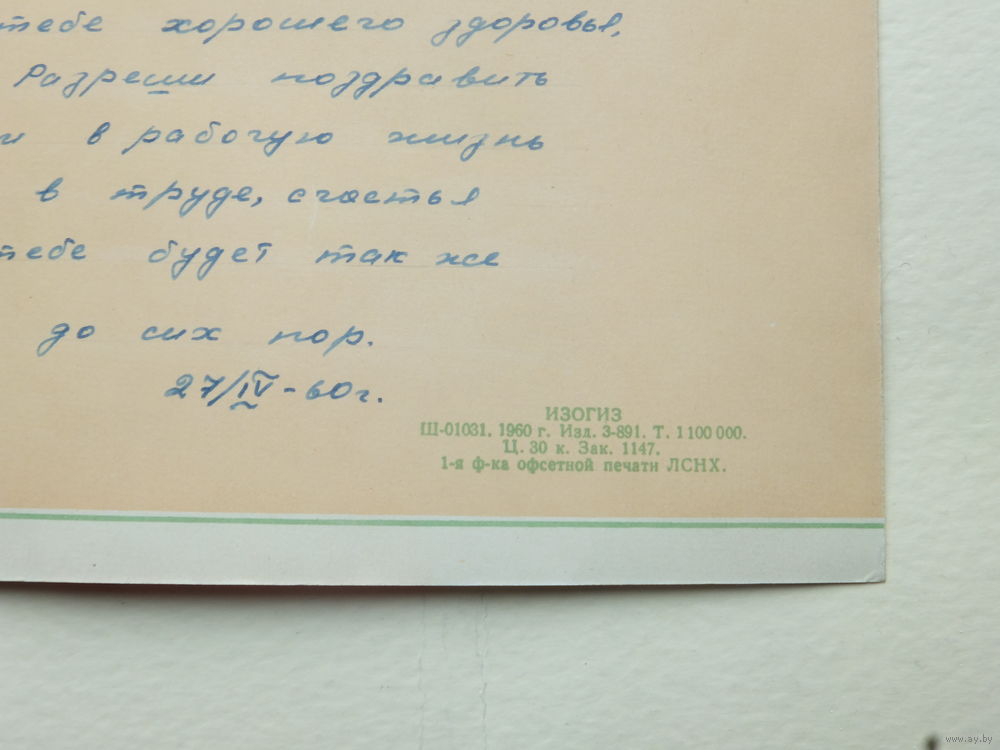 тебе хорошего здоровья,
Разреши поздравить
и в рабочую жизнь
в труде, счастья
тебе будет так же
до сих пор.
27/IV-60г.
ИЗОГИЗ
Ш-01031. 1960 г. Изд. 3-891. Т. 1 100 000.
Ц. 30 к. Зак. 1147.
1-я ф-ка офсетной печати ЛСНХ.
www.ay.by